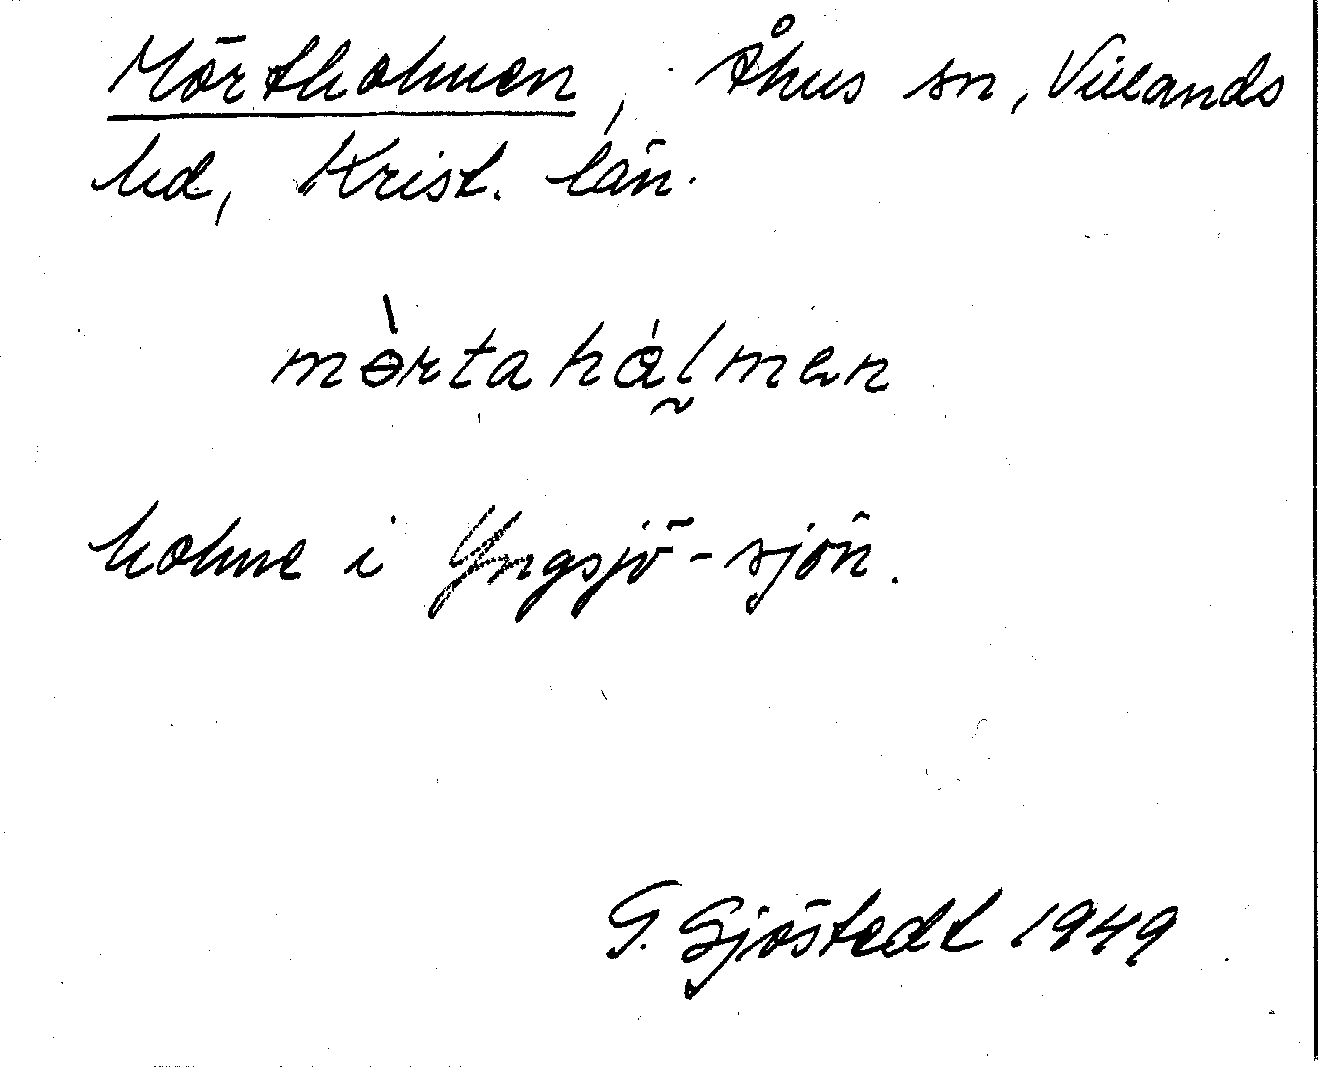 Mörtholmen, Åhus sn, Villands
hd, Krist. län.
mɵ̀rtahål̰mən
holme i Yngsjö-sjön.
G. Sjöstedt 1949